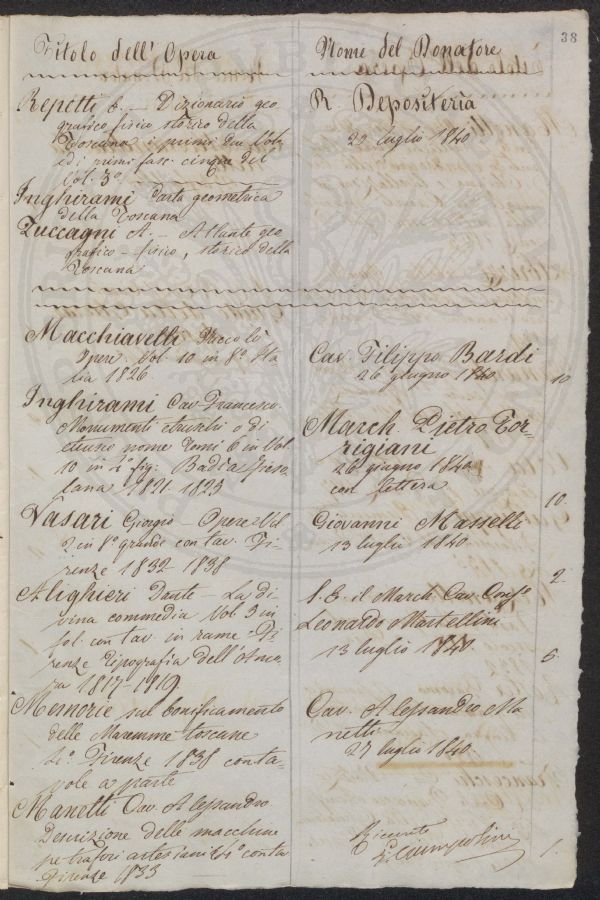 38
Titolo dell' Opera
Nome del Donatore
Repetti E. – Dizionario geo
grafico fisico storico della
Toscana i primi due Vol.
ed i primi fasc. cinque del
Vol. 3º
R. Depositeria
29 luglio 1840
Inghirami Carta geometrica
della Toscana
Zuccagni A. – Atlante geo
grafico – fisico, storico della
Toscana
Macchiavelli Niccolò
Opere Vol. 10 in 8º Ita
lia 1826
Cav. Filippo Bardi
26 giugno 1840
10
Inghirami Cav. Francesco
Monumenti etruschi o di
etrusco nome Tomi 6 in Vol.
10 in 4º fig. Badia Fieso
lana 1821-1825
March. Pietro Tor-
rigiani
26 giugno 1840
con lettera
10
Vasari Giorgio – Opere Vol
2 in 8º grande con tav. Fi-
renze 1832-1838
Giovanni Masselli
13 luglio 1840
2
Alighieri Dante – La di
vina commedia Vol. 3 in
fol. con tav. in rame Fi-
renze Tipografia dell'Anco
ra 1817-1819
S. E. il March. Cav. Consº
Leonardo Martellini
13 luglio 1840
5
Memorie sul bonificamento
delle Maremme toscane
Firenze 1838 con ta-
vole a parte
Cav. Alessandro Ma
netti
27 luglio 1840
Manetti Cav. Alessandro
Descrizione delle macchine
pe' trafori artesiani 4º con ta
Firenze 1833
Ricevuto
1